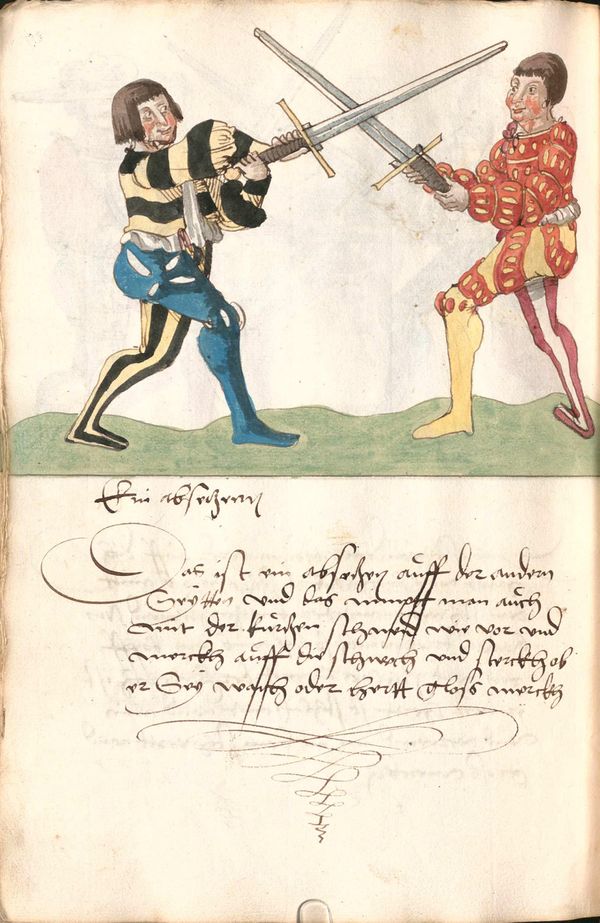 Ein absetzenn
Das ist ein absetzen auff der andern
Seÿtten vnd das nimptt man auch
mitt der kurtzen schneid wie vor vnd
merckh auff die schwech vnd sterckh ob
er Seÿ waich oder hertt Gloss merckh